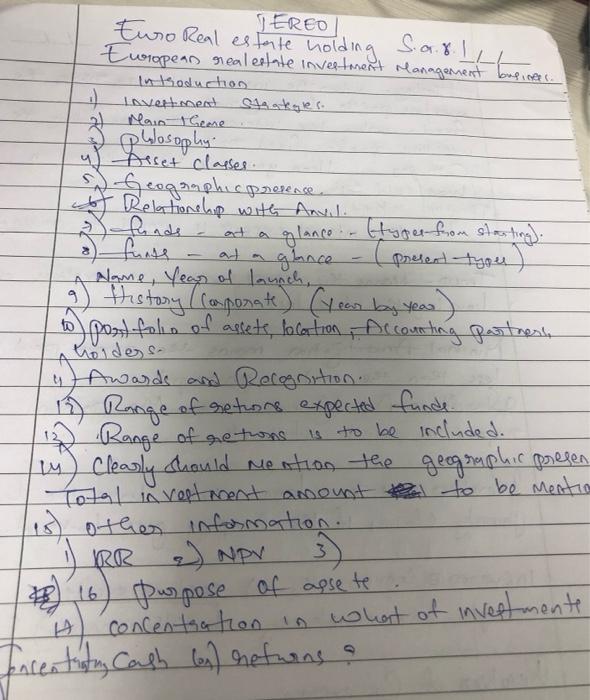 EREO
Euro Real estate holding S.a.r.l
European real estate investment Management business.
Introduction
1) Investment Strategies.
2) Main theme.
3) Philosophy.
4) Asset Classes.
5) Geographic presence.
6) Relationship with Anvil.
7) funds - at a glance - (types from starting).
8) funds - at a glance - (present types)
Name, Year of launch,
9) History (Corporate) (Year by year)
10) portfolio of assets, location, Accounting partners,
holders.
11) Awards and Recognition.
12) Range of returns expected funds.
13) Range of returns is to be included.
14) Clearly should mention the geographic presen
Total investment amount to be mentio
15) other information.
1) IRR 2) NPV 3)
16) purpose of assete.
17) concentration in what of investments
Cash (or) returns?